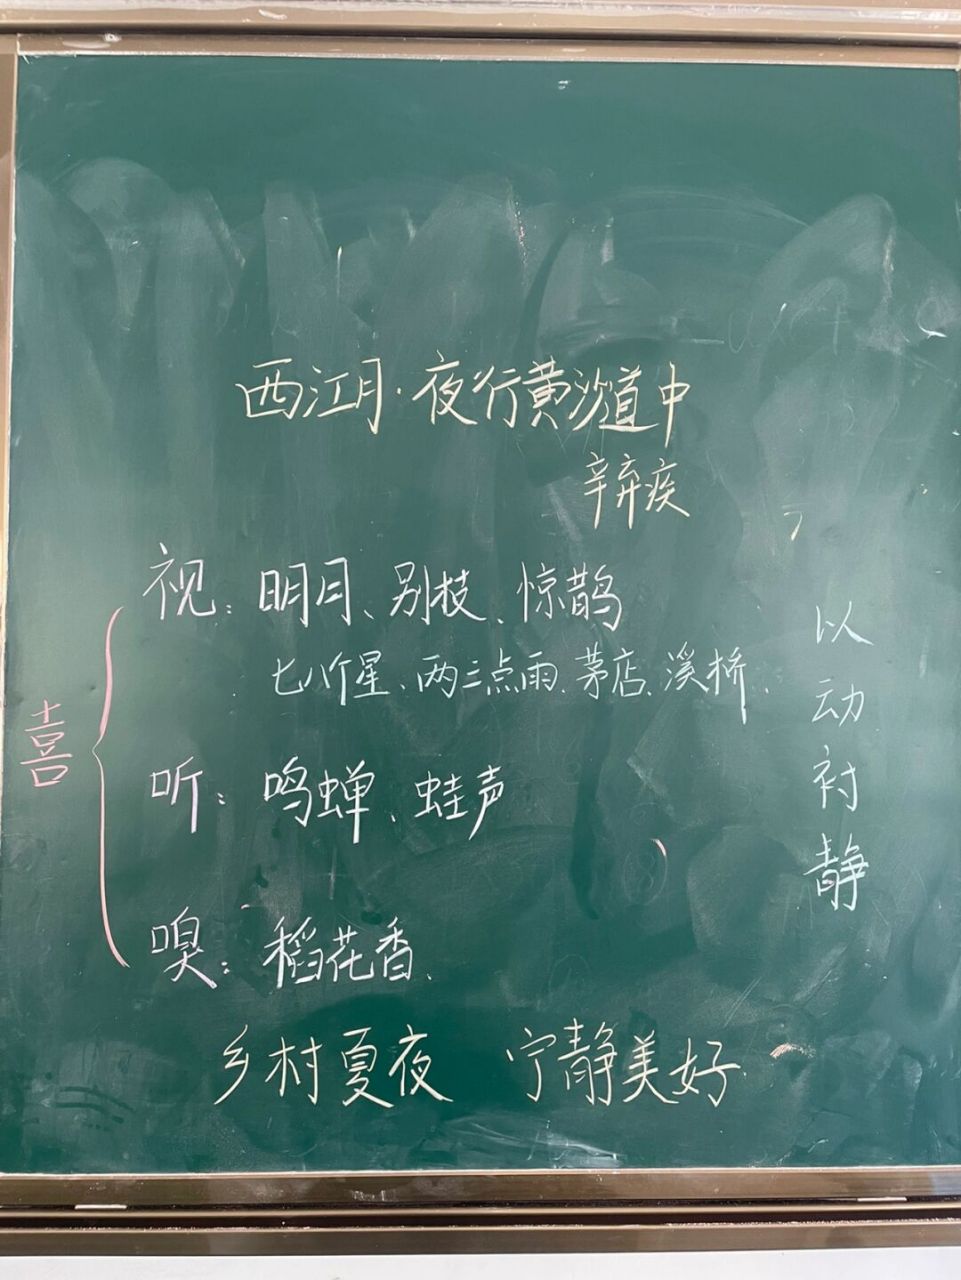 西江月·夜行黄沙道中
辛弃疾
视：明月、别枝、惊鹊
七八个星、两三点雨、茅店、溪桥、
喜
听：鸣蝉、蛙声
嗅：稻花香、
以动衬静
乡村夏夜 宁静美好